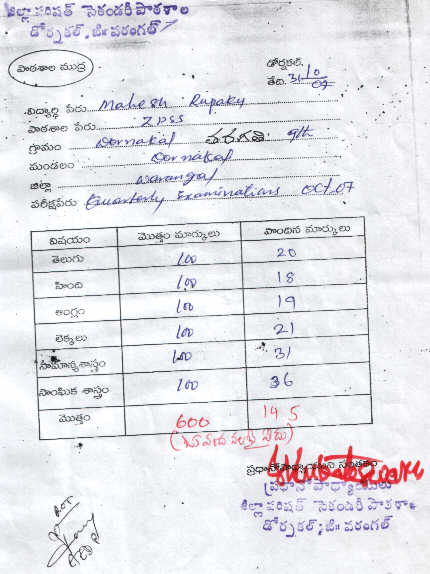 జిల్లా పరిషత్ సెకండరీ పాఠశాల
డోర్నకల్, జి॥ వరంగల్
పాఠశాల ముద్ర
డోర్నకల్,
తేది. 31/10/07
విద్యార్థి పేరు Mahesh Rupaky
పాఠశాల పేరు ZPSS
గ్రామం Dornakal తరగతి: 9th
మండలం Dornakal
జిల్లా Warangal
పరీక్షపేరు Quarterly Examinations Oct.07
విషయం మొత్తం మార్కులు పొందిన మార్కులు
తెలుగు 100 20
హింది 100 18
ఆంగ్లం 100 19
లెక్కలు 100 21
సామాన్యశాస్త్రం 100 31
సాంఘిక శాస్త్రం 100 36
మొత్తం 600 145
ప్రధానోపాధ్యాయుని సంతకం
ప్రధానోపాధ్యాయులు
జిల్లా పరిషత్ సెకండరీ పాఠశాల
డోర్నకల్; జి॥ వరంగల్